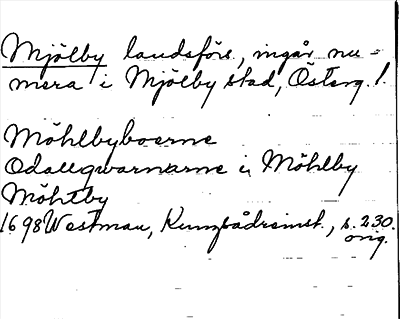 Mjölby landsförs., ingår nu-
mera i Mjölby stad, Österg. l.
Möhlbyboerne
Odallqwarnarne i Möhlby
Möhlby
1698 Westman, s. 230.
orig.